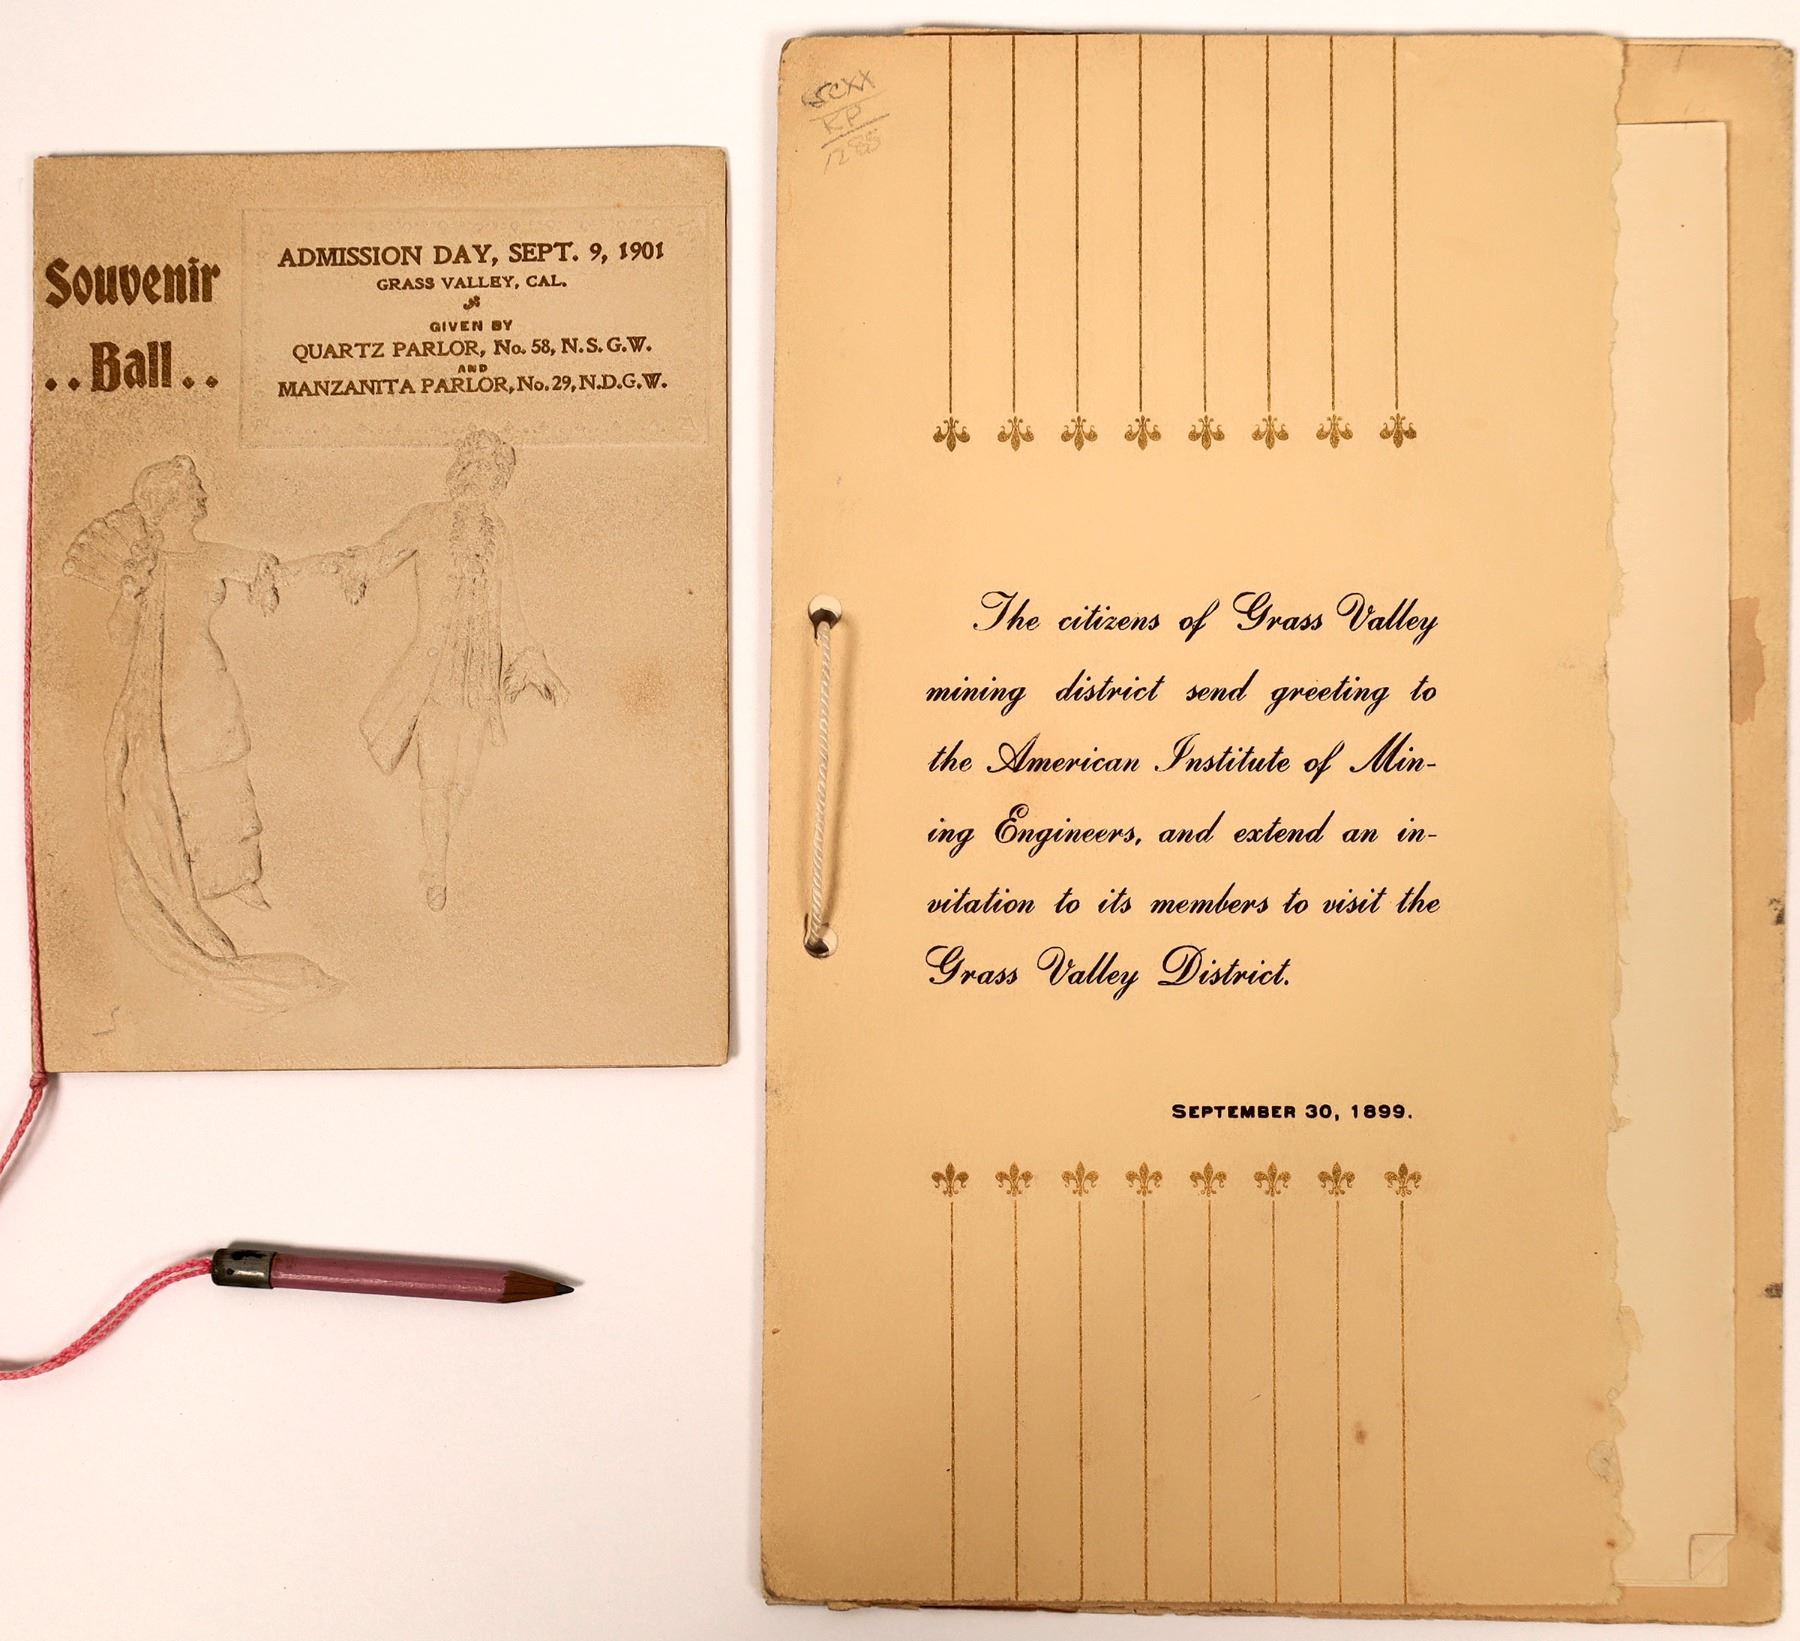 Souvenir
..Ball..
ADMISSION DAY, SEPT. 9, 1901
GRASS VALLEY, CAL.
GIVEN BY
QUARTZ PARLOR, No. 58, N.S.G.W.
AND
MANZANITA PARLOR, No. 29, N.D.G.W.
RP
1285
The citizens of Grass Valley
mining district send greeting to
the American Institute of Min-
ing Engineers, and extend an in-
vitation to its members to visit the
Grass Valley District.
SEPTEMBER 30, 1899.